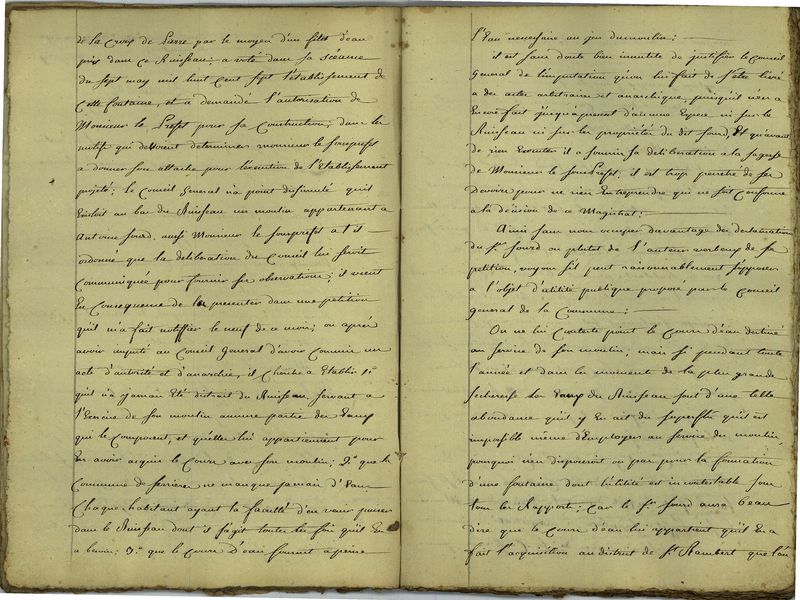 de la Croix de Pierre par le moyen d'un filet d'eau
pris dans ce Ruisseau: a voté dans sa scéance
du sept may mil huit cent sept l'établissement de
cette fontaine, et a demandé l'autorisation de
Monsieur le Préfet pour sa construction; dans les
motifs qui devoient determiner monsieur le souprefet
a donner son attache pour l'éxecution de l'Etablissement
projeté: le Conseil General n'a point dissimulé qu'il
Existoit au bas du Ruisseau un moulin appartenant a
Antoine Sourd, aussi Monsieur le souprefet a t il
ordonné que la deliberation du Conseil lui seroit
Communiquée pour fournir ses observations; il vient
En Consequence de les presenter dans une petition
qu'il m'a fait notiffier le neuf de ce mois; ou après
avoir imputé au Conseil General d'avoir Commis un
acte d'autorité et d'anarchie, il cherche a Etablir 1.º
qu'il n'a jamais Eté distrait du Ruisseau servant a
l'Exercice de son moulin aucune partie des Eaux
qui le Composent, et qu'elles lui appartiennent pour
En avoir acquis le Cours avec son moulin; 2.º que la
Commune de ferrieres ne manque jamais d'Eau
Chaque habitant ayant la faculté d'en venir puiser
dans le Ruisseau dont il s'agit toutes les fois qu'il En
a besoin: 3.º que le Cours d'eau fournit a peine
l'Eau necessaire au jeu du moulin:
il est sans doute bien inutile de justifier le Conseil
General de l'imputation qu'on lui fait de s'etre livré
a des actes arbitraires et anarchique, puisqu'il n'en a
Encore fait jusqu'aprésent d'aucune Espece ni sur le
Ruisseau ni sur les propriétés du dit Sourd, Et qu'avant
de rien Executer il a soumis sa deliberation a la sagesse
de Monsieur le Sous Prefet, il est trop penetré de ses
Devoirs pour ne rien Entreprendre qui ne soit Conforme
a la décision de ce Magistrat:
Ainsi sans nous occuper davantage des declamations
du S.r Sourd ou plutot de l'auteur verbeux de sa
petition, voyons s'il peut raisonnablement s'opposer
a l'objet d'utilité publique proposé par le Conseil
general de la Commune:
On ne lui Conteste point le Cours d'eau destiné
au service de son moulin, mais si pendant toute
l'année et dans les moments de la plus grande
secheresse les Eaux du Ruisseau sont d'une telle
abondance qu'il y En ait du superflu qu'il est
impossible même d'Employer au service du moulin
pourquoi n'en disposeroit on pas pour la formation
d'une fontaine dont l'utilité est incontestable sous
tous les Rapports; Car le S.r Sourd aura beau
dire que le Cours d'eau lui appartient qu'il En a
fait l'acquisition au district de S.t Rambert que l'on